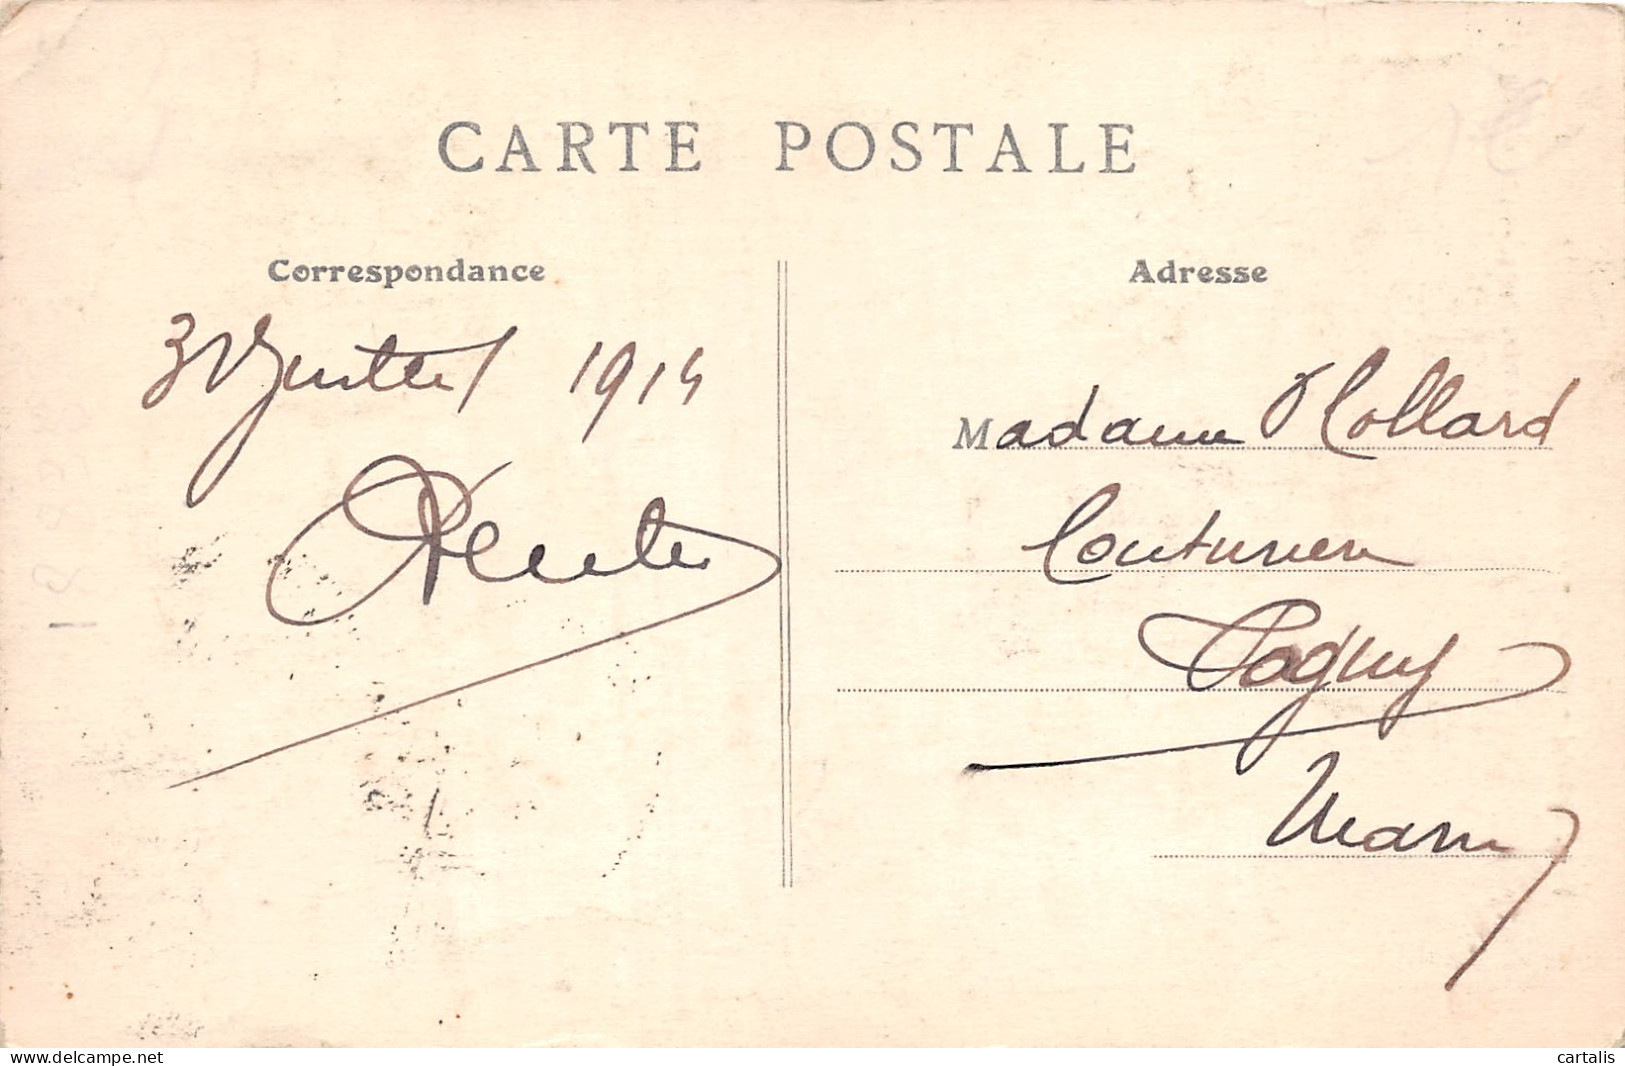 CARTE POSTALE
Correspondance
Juillet 1914
Adresse
Madame Mollard
Couturière
Pogny
Marne
delcampe.net
cartalis